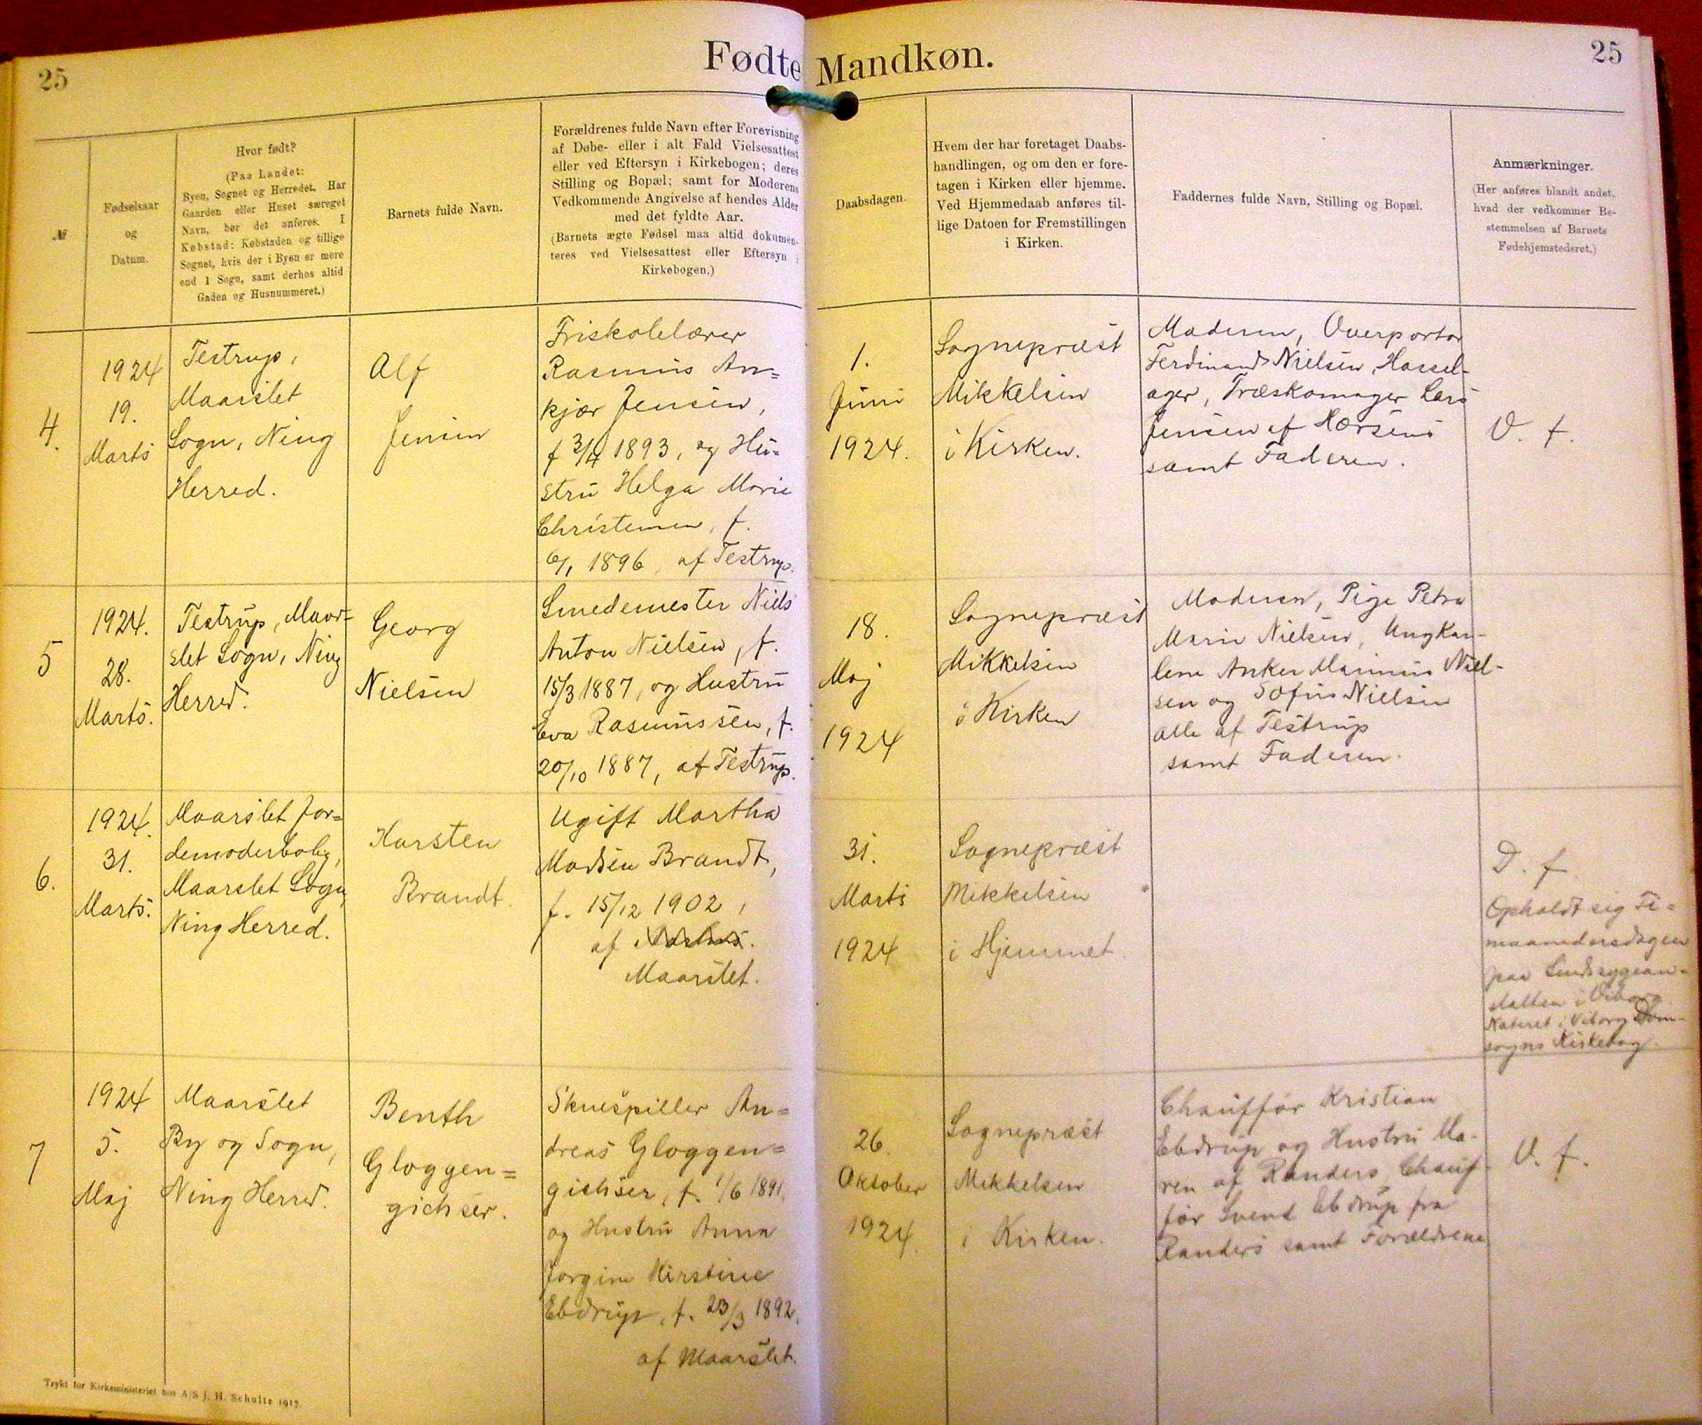 25
Fødte Mandkøn.
25
№
Fødselsaar
og
Datum.
Hvor født?
(Paa Landet:
Byen, Sognet og Herredet. Har
Gaarden eller Huset særeget
Navn, bør det anføres. I
Købstad: Købstaden og tillige
Sognet, hvis der i Byen er mere
end 1 Sogn, samt derhos altid
Gaden og Husnummeret.)
Barnets fulde Navn.
Forældrenes fulde Navn efter Forevisning
af Døbe- eller i alt Fald Vielsesattest
eller ved Eftersyn i Kirkebogen; deres
Stilling og Bopæl; samt for Moderens
Vedkommende Angivelse af hendes Alder
med det fyldte Aar.
(Barnets ægte Fødsel maa altid dokumen-
teres ved Vielsesattest eller Eftersyn i
Kirkebogen.)
Daabsdagen.
Hvem der har foretaget Daabs-
handlingen, og om den er fore-
tagen i Kirken eller hjemme.
Ved Hjemmedaab anføres til-
lige Datoen for Fremstillingen
i Kirken.
Faddernes fulde Navn, Stilling og Bopæl.
Anmærkninger.
(Her anføres blandt andet,
hvad der vedkommer Be-
stemmelsen af Barnets
Fødehjemstedsret.)
4.
1924
19.
Marts
Testrup,
Maarslet
Sogn, Ning
Herred.
Alf
Jensen
Friskolelærer
Rasmus An=
kjær Jensen,
f 3/4 1893, og Hu-
stru Helga Marie
Christensen, f.
6/1 1896, af Testrup.
1.
Juni
1924.
Sognepræst
Mikkelsen
i Kirken.
Moderen, Overportør
Ferdinand Nielsen, Hassel-
ager, Træskomager Lars
Jensen af Horsens
samt Faderen.
V. f.
5
1924.
28.
Marts.
Testrup, Maar-
slet Sogn, Ning
Herred.
Georg
Nielsen
Smedemester Niels
Anton Nielsen, f.
15/3 1887, og Hustru
Eva Rasmussen, f.
20/10 1887, af Testrup.
18.
Maj
1924
Sognepræst
Mikkelsen
i Kirken
Moderen, Pige Petra
Marie Nielsen, Ungkar-
lene Anker Marinus Niel-
sen og Sofus Nielsen
alle af Testrup
samt Faderen.
6.
1924.
31.
Marts.
Maarslet Jor=
demoderbolig,
Maarslet Sogn,
Ning Herred.
Karsten
Brandt.
Ugift Martha
Madsen Brandt,
f. 15/12 1902,
af Aarhus.
Maarslet.
31.
Marts
1924
Sognepræst
Mikkelsen
i Hjemmet.
D. f.
Opholdt sig Ti-
maanedersdagen
paa Sindssygean-
stalten i Viborg.
Noteret i Viborg Dom-
sogns Kirkebog.
7
1924
5.
Maj
Maarslet
By og Sogn,
Ning Herred.
Benth
Gloggen=
gichser.
Skuespiller An=
dreas Gloggen=
gichser, f. 1/6 1891,
og Hustru Anna
Jørgine Kirstine
Ebdrup, f. 23/3 1892.
af Maarslet.
26.
Oktober
1924.
Sognepræst
Mikkelsen
i Kirken.
Chauffør Kristian
Ebdrup og Hustru Ma-
ren af Randers, Chauf-
før Svend Ebdrup fra
Randers samt Forældrene
V. f.
Trykt for Kirkeministeriet hos A/S J. H. Schultz 1917.